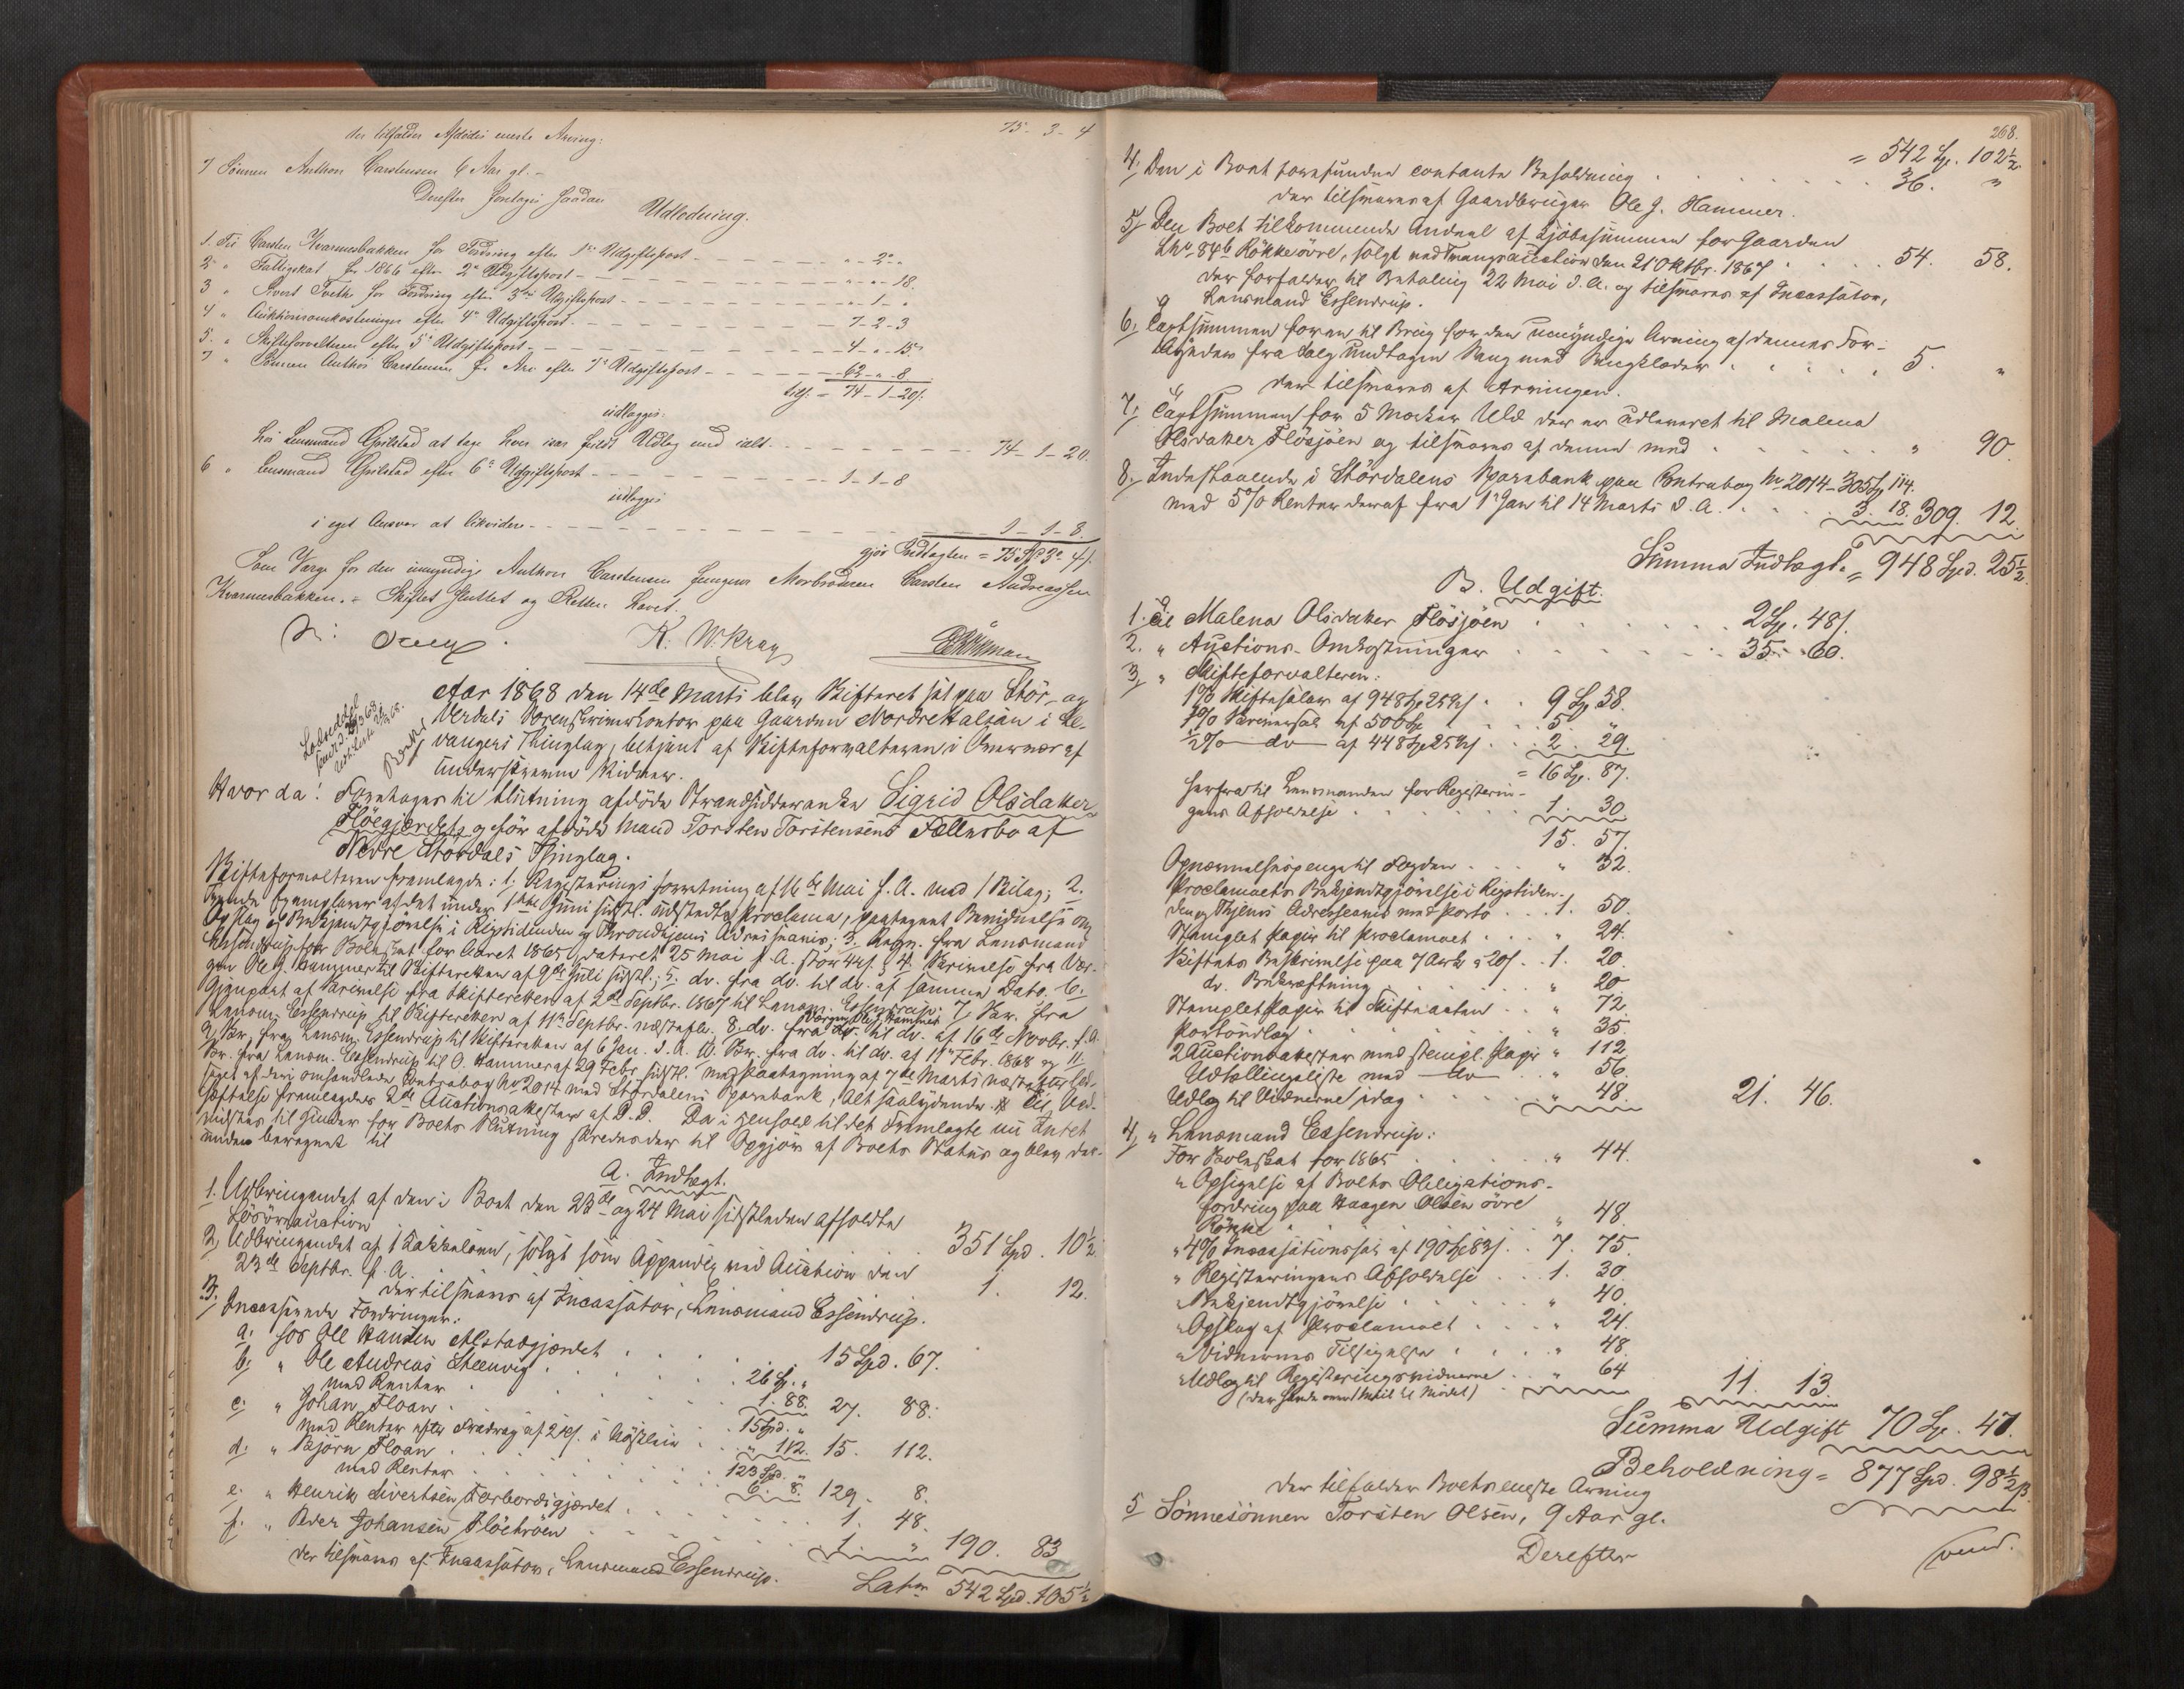 75 - 3 - 4
der tilfalder Afdødes eneste Arving:
7 Sønnen Anthon Carstensen 6 Aar gl. -
Derefter foretoges saadan
Udlodning.
1. Til Carsten Kvarmesbakken for Fordring efter 1e Udgiftspost - " - 2 - "
2 " Fattigskat for 1866 efter 2e Udgiftspost - " - " - 18.
3 " Sivert Tveth for Fordring efter 3die Udgiftspost - " - 1 - "
4 " Auktionsomkostninger efter 4e Udgiftspost - 7 - 2 - 3
5. " Skifteforvalteren efter 5e Udgiftspost - 4 - " - 15
7 " Sønnen Anthon Carstensen for Arv efter 7e Udgiftspost - 62 - " - 8
tils. = 74 - 1 - 20 s.
udlægges:
hos Lensmand Qvilstad at tage hver især fuldt Udlæg med ialt - 74 - 1 - 20.
6 " Lensmand Qvilstad efter 6e Udgiftspost - 1 - 1 - 8
udlægges
i eget Ansvar at likvidere - 1 - 1 - 8.
gjør Indtægten = 75 Spd 3 4 s.
Som Værge for den umyndige Anthon Carstensen fungerer Morbroderen Carsten Andreassen
Kvarmesbakken. - Skiftet sluttet og Retten hævet.
K. W. Kray
Aar 1868 den 14de Marts blev Skifteret sat paa Stør- og
Verdals Sorenskriverkontor paa Gaarden Nordre Halsan i Le-
vangers Thinglag, betjent af Skifteforvalteren i Overvær af
underskrevne Vidner.
Hvor da: Foretoges til Slutning afdøde Strandsidderenke Sigrid Olsdatter
Fløegjerdet og før afdøde Mand Torsten Torstensens Fællesbo af
Nedre Stördals Thinglag.
Skifteforvalteren fremlagde: 1. Registreringsforretning af 16de Mai f. A. med 1 Bilag; 2.
Tvende Exemplarer af det under 1ste Juni sidstl. udstedte Proclama, paategnet Bevidnelse om
Opslag og Bekjendtgjørelse i Rigstidenden og Throndhjems Adresseavis; 3. Regn. fra Lensmand
Essendrup for Boets Skat for Aaret 1865, dateret 25 Mai f. A. stor 44 s.; 4. Skrivelse fra Vær-
gen Ole J. Hammer til Skifteretten af 9de Juli sidstl.; 5. do. fra do. til do. af samme Dato. 6.
Gjenpart af Skrivelse fra Skifteretten af 2de Septbr. 1867 til Lensm. Essendrup; 7. Skr. fra
Lensm. Essendrup til Skifteretten af 11te Septbr. næstefter. 8. do. fra Værgen Ole J. Hammer til do. af 16de Novbr. f. A.
9. Skr. fra Lensm. Essendrup til Skifteretten af 6 Jan. d. A. 10. Skr. fra do. til do. af 11te Febr. 1868 og 11.
Skr. fra Lensm. Essendrup til O. Hammer af 29 Febr. sidstl. med Paategning af 7de Marts næstefter led-
saget af deri omhandlede Contrabog No 2014 med Stördalens Sparebank, Alt saalydende. Til Ved-
hæftelse fremlagdes 2de Auctionsakester af D. D. Da i Henhold til det Fremlagte nu Intet
vidstes til Hinder for Boets Slutning skredes der til Opgjør af Boets Status og blev der-
under beregnet til
A. Indtægt.
1. Udbringendet af den i Boet den 23de og 24 Mai sidstleden afholdte
Løsøreauction 351 Spd. 10½
2, Udbringendet af 1 Lakkeloun, solgt som Appendix ved Auction den
23de Septbr. f. A. 1. 12.
der tilsvares af Incassator, Lensmand Essendrup.
3, Incasserede Fordringer:
a. hos Ole Hansen Alstadgjerdet 15 Spd. 67.
b. " Ole Andreas Steenvig 26 Sp. "
med Renter 1. 88. 27. 88.
c. " Johan Floan 15 Spd. "
med Renter efter Fradrag af 2 s. i Høstlein " 112. 15. 112.
d. " Bjørn Floan 123 Spd. "
med Renter 6. 8. 129. 8.
e. " Henrik Sivertsen Forbordsgjerdet 1. 48.
f. " Peder Johansen Fløehröen 1. " 190. 83
der tilsvares af Incassator, Lensmand Essendrup.
Latus 542 Spd. 105½
268.
= 542 Sp. 102½
4, Den i Boet forefundne contante Beholdning 36. "
der tilsvares af Gaardbruger Ole J. Hammer.
5, Den Boet tilkommende Andeel af Kjøbesummen for Gaarden
LNo 84b Røkke øvre, solgt ved Tvangsauction den 21 Oktbr. 1867 54. 58.
der forfalder til Betaling 22 Mai d. A. og tilsvares af Incassator,
Lensmand Essendrup.
6, Taxtsummen for en til Brug for den umyndige Arving af dennes For-
myndere fra Salg undtagen Seng med Sengklæder 5. "
der tilsvares af Arvingen.
7, Taxtsummen for 5 Marker Uld der er udleveret til Malena
Olsdatter Flösjöen og tilsvares af denne med " 90.
8, Indestaaende i Stördalens Sparebank paa Contrabog No 2014 - 305 Sp 114.
med 5% Renter deraf fra 1e Jan til 14 Marts d. A. 3. 18. 309. 12.
Summa Indtægt = 948 Spd. 25½
B. Udgift.
1. Til Malena Olsdatter Flösjöen 2 Sp. 48 s.
2. " Auctions-Omkostninger 35 - 60.
3, " Skifteforvalteren:
1% Skiftesalær af 948 Sp 25½ s 9 Sp 58.
1% Skriversal. af 500 Sp 5. "
½% do af 448 Sp 25½ s 2. 29.
= 16 Sp. 87.
herfra til Lensmanden for Registerin-
gens Afholdelse 1. 30
15. 57.
Opnævnelsespenge til Fogden " 32.
Proclamaets Bekjendtgjörelse i Rigstiden-
den og Thjems Adresseavis med Porto 1. 50.
Stemplet Papir til Proclamaet " 24.
Skiftets Beskrivelse paa 7 Ark a 20 s 1. 20.
do. Bekræftning " 20
Stemplet Papir til Skifteakten " 72.
Portoudlæg " 35.
2 Auctionsakester med stempl. Papir " 112
Udtællingsliste med do " 56.
Udlæg til Vidnerne idag " 48. 21. 46.
4, " Lensmand Essendrup:
For Boets Skat for 1865 " 44.
" Opsigelse af Boets Obligations-
fordring paa Haagen Olsen övre
Røkke " 48.
" 4% Incassationssal. af 190 Sp 83 s 7. 75.
" Registeringens Afholdelse 1. 30
" Bekjendtgjörelse " 40.
" Opslag af Proclamaet " 24.
" Vidnernes Tilsigelse " 48.
" Udlæg til Registeringsvidnerne " 64
(der havde over 1 Miil til Mødet) 11. 13.
Summa Udgift 70 Sp. 47.
Beholdning = 877 Spd. 98½ s
der tilfalder Boets eneste Arving
5 Sönnesönnen Torsten Olsen, 9 Aar gl.
Derefter
vend.